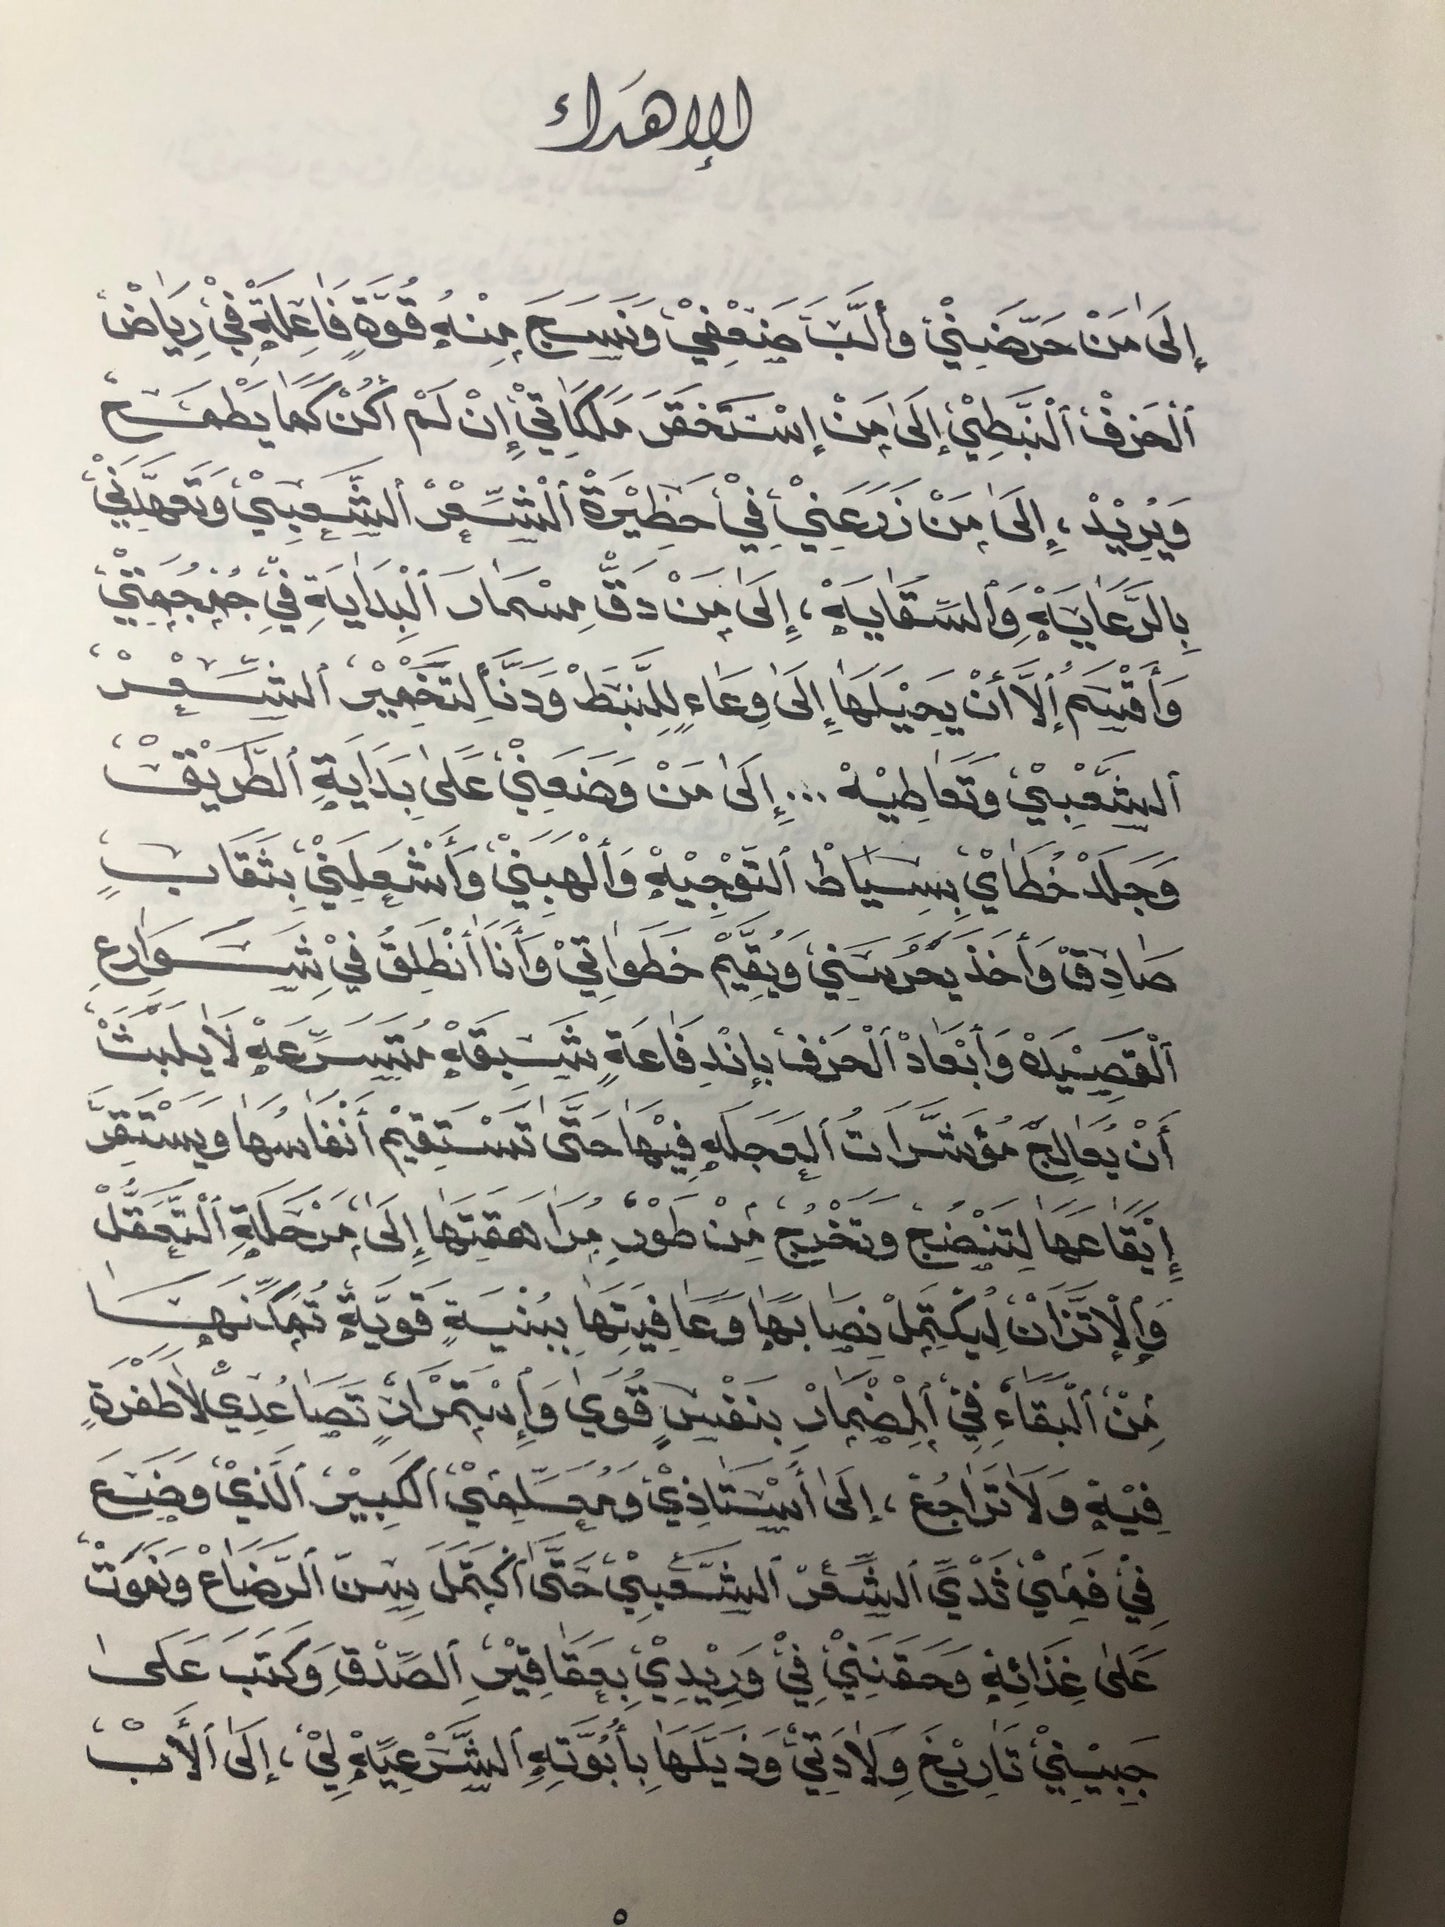 الإهداء
إلى من حرّضني وألّب ضعفي ونسج منه قوّة فاعلة في رياض
الحرف النّبطي إلى من إستحقر ملكاتي إن لم أكن كما يطمح
ويريد ، إلى من زرعني في حظيرة الشّعر الشّعبي وتعهّدني
بالرّعايه والسّقايه ، إلى من دقّ مسمار البداية في جمجمتي
وأقسم ألاّ أن يحيلها إلى وعاء للنّبط ودنّاً لتخمير الشّعر
الشّعبي وتعاطيه ... إلى من وضعني على بداية الطّريق
وجلد خطاي بسياط التّوجيه وألهبني وأشعلني بثقاب
صادق وأخذ يحرسني ويقيّم خطواتي وأنا أنطلق في شوارع
القصيده وأبعاد الحرف بإندفاعة شبقه متسرّعه لا يلبث
أن يعالج مؤشّرات العجله فيها حتّى تستقيم أنفاسها ويستقرّ
إيقاعها لتنضج وتخرج من طور مراهقتها إلى مرحلة التّعقّل
والإتّزان ليكتمل نصابها وعافيتها ببنية قويّة تمكّنها
من البقاء في المضمار بنفس قوي وإستمرار تصاعدي لا طفرة
فيه ولا تراجع ، إلى أستاذي ومعلّمي الكبير الّذي وضع
في فمي ثدي الشّعر الشّعبي حتّى أكتمل سنّ الرّضاع ونموت
على غذائه وحقنني في وريدي بعقاقير الصّدق وكتب على
جبيني تاريخ ولادتي وذيّلها بأبوّته الشّرعيّه لي ، إلى الأب
٥